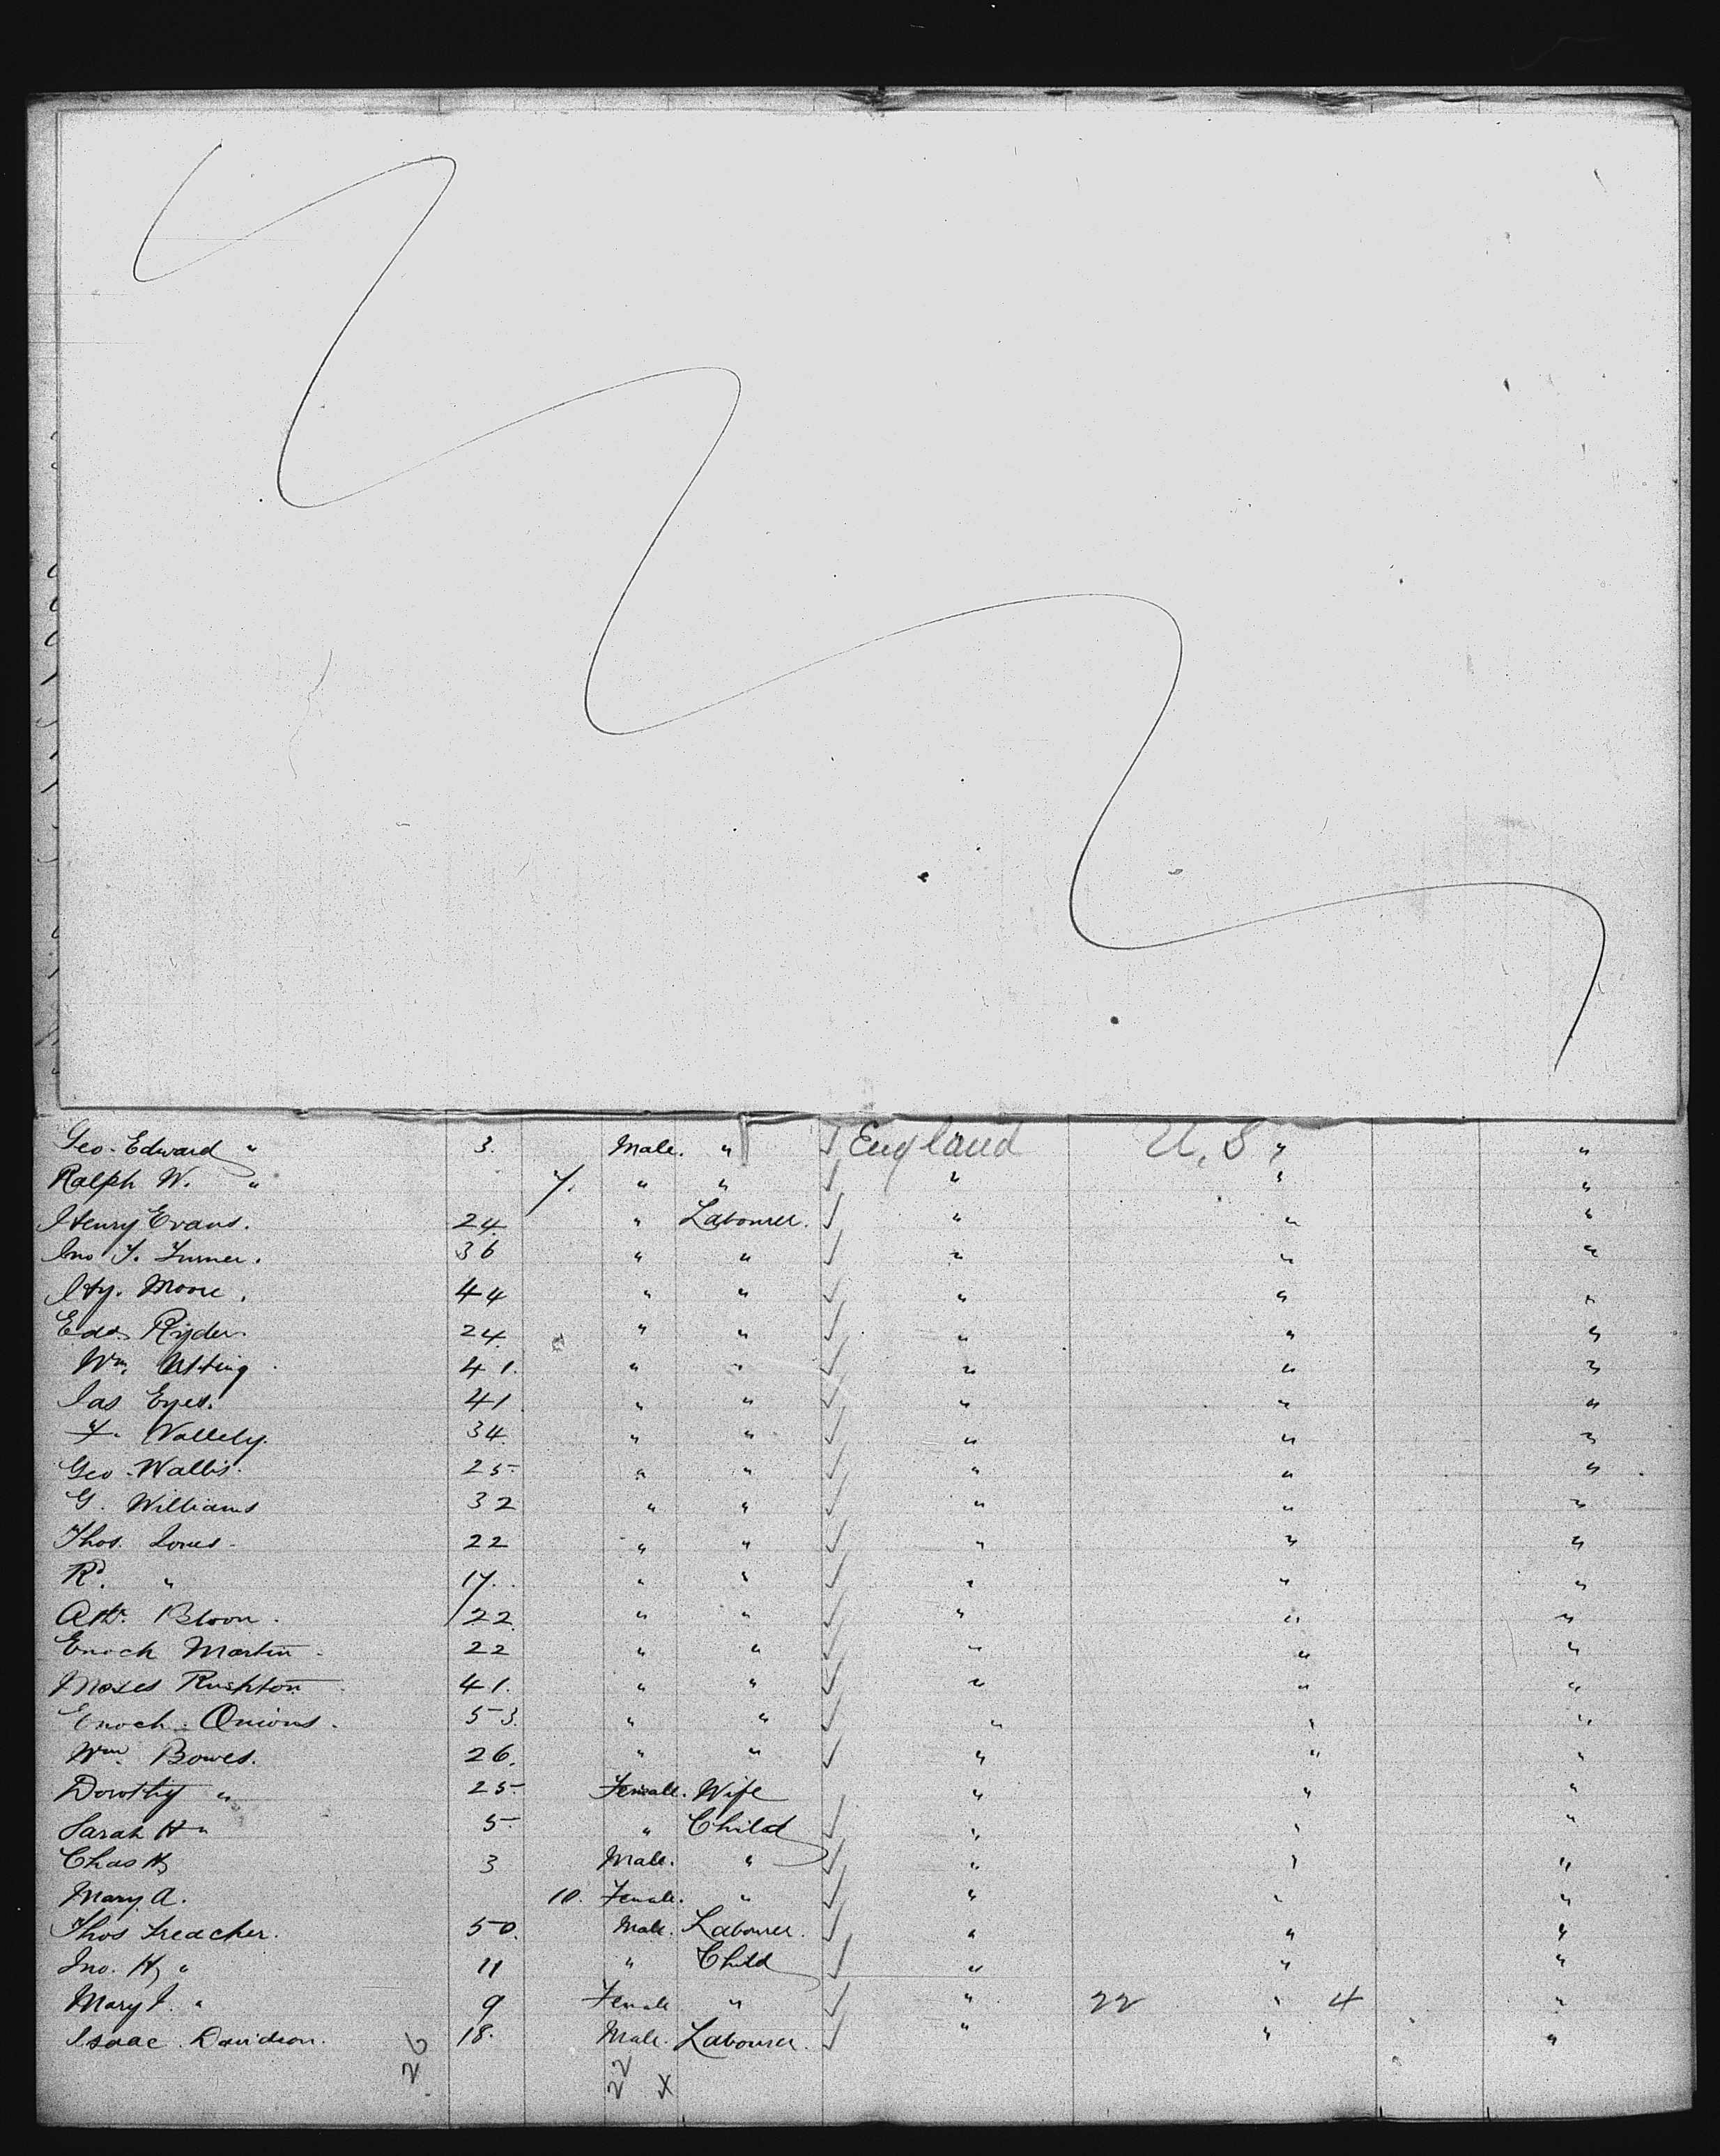 Geo. Edward " 3. Male. " England " U.S. " "
Ralph W. " 7. " " " " "
Henry Evans. 24. " Labourer. " " "
Jno T. Turner. 36 " " " " "
Hy. Moore. 44 " " " " "
Edd. Ryder. 24. " " " " "
Wm. Utting. 41. " " " " "
Jas Eyes. 41 " " " " "
F. Vallely. 34. " " " " "
Geo. Wallis. 25. " " " " "
G. Williams 32 " " " " "
Thos. Jones. 22 " " " " "
Rd. " 17. " " " " "
Bloor. 22. " " " " "
Enoch Martin. 22 " " " " "
Moses Rushton. 41. " " " " "
Enoch. Onions. 53. " " " " "
Wm. Bowes. 26. " " " " "
Dorothy " 25. Female. Wife " " "
Sarah H " 5. " Child " " "
Chas H 3 Male. " " " "
Mary. A. 10. Female. " " " "
Thos Treacher. 50. Male. Labourer. " " "
Jno. Hy " 11 " Child " " "
Mary J. " 9 Female " " 22 " 4 "
Isaac. Davidson. 18. Male. Labourer. " " "
26 22 x